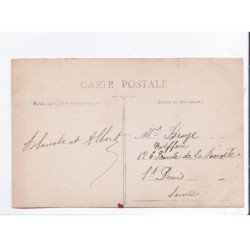 CARTE POSTALE
Blanche et Albert
Mr Broye
Coiffeur
126 Route de la Révolte
St Denis
Seine